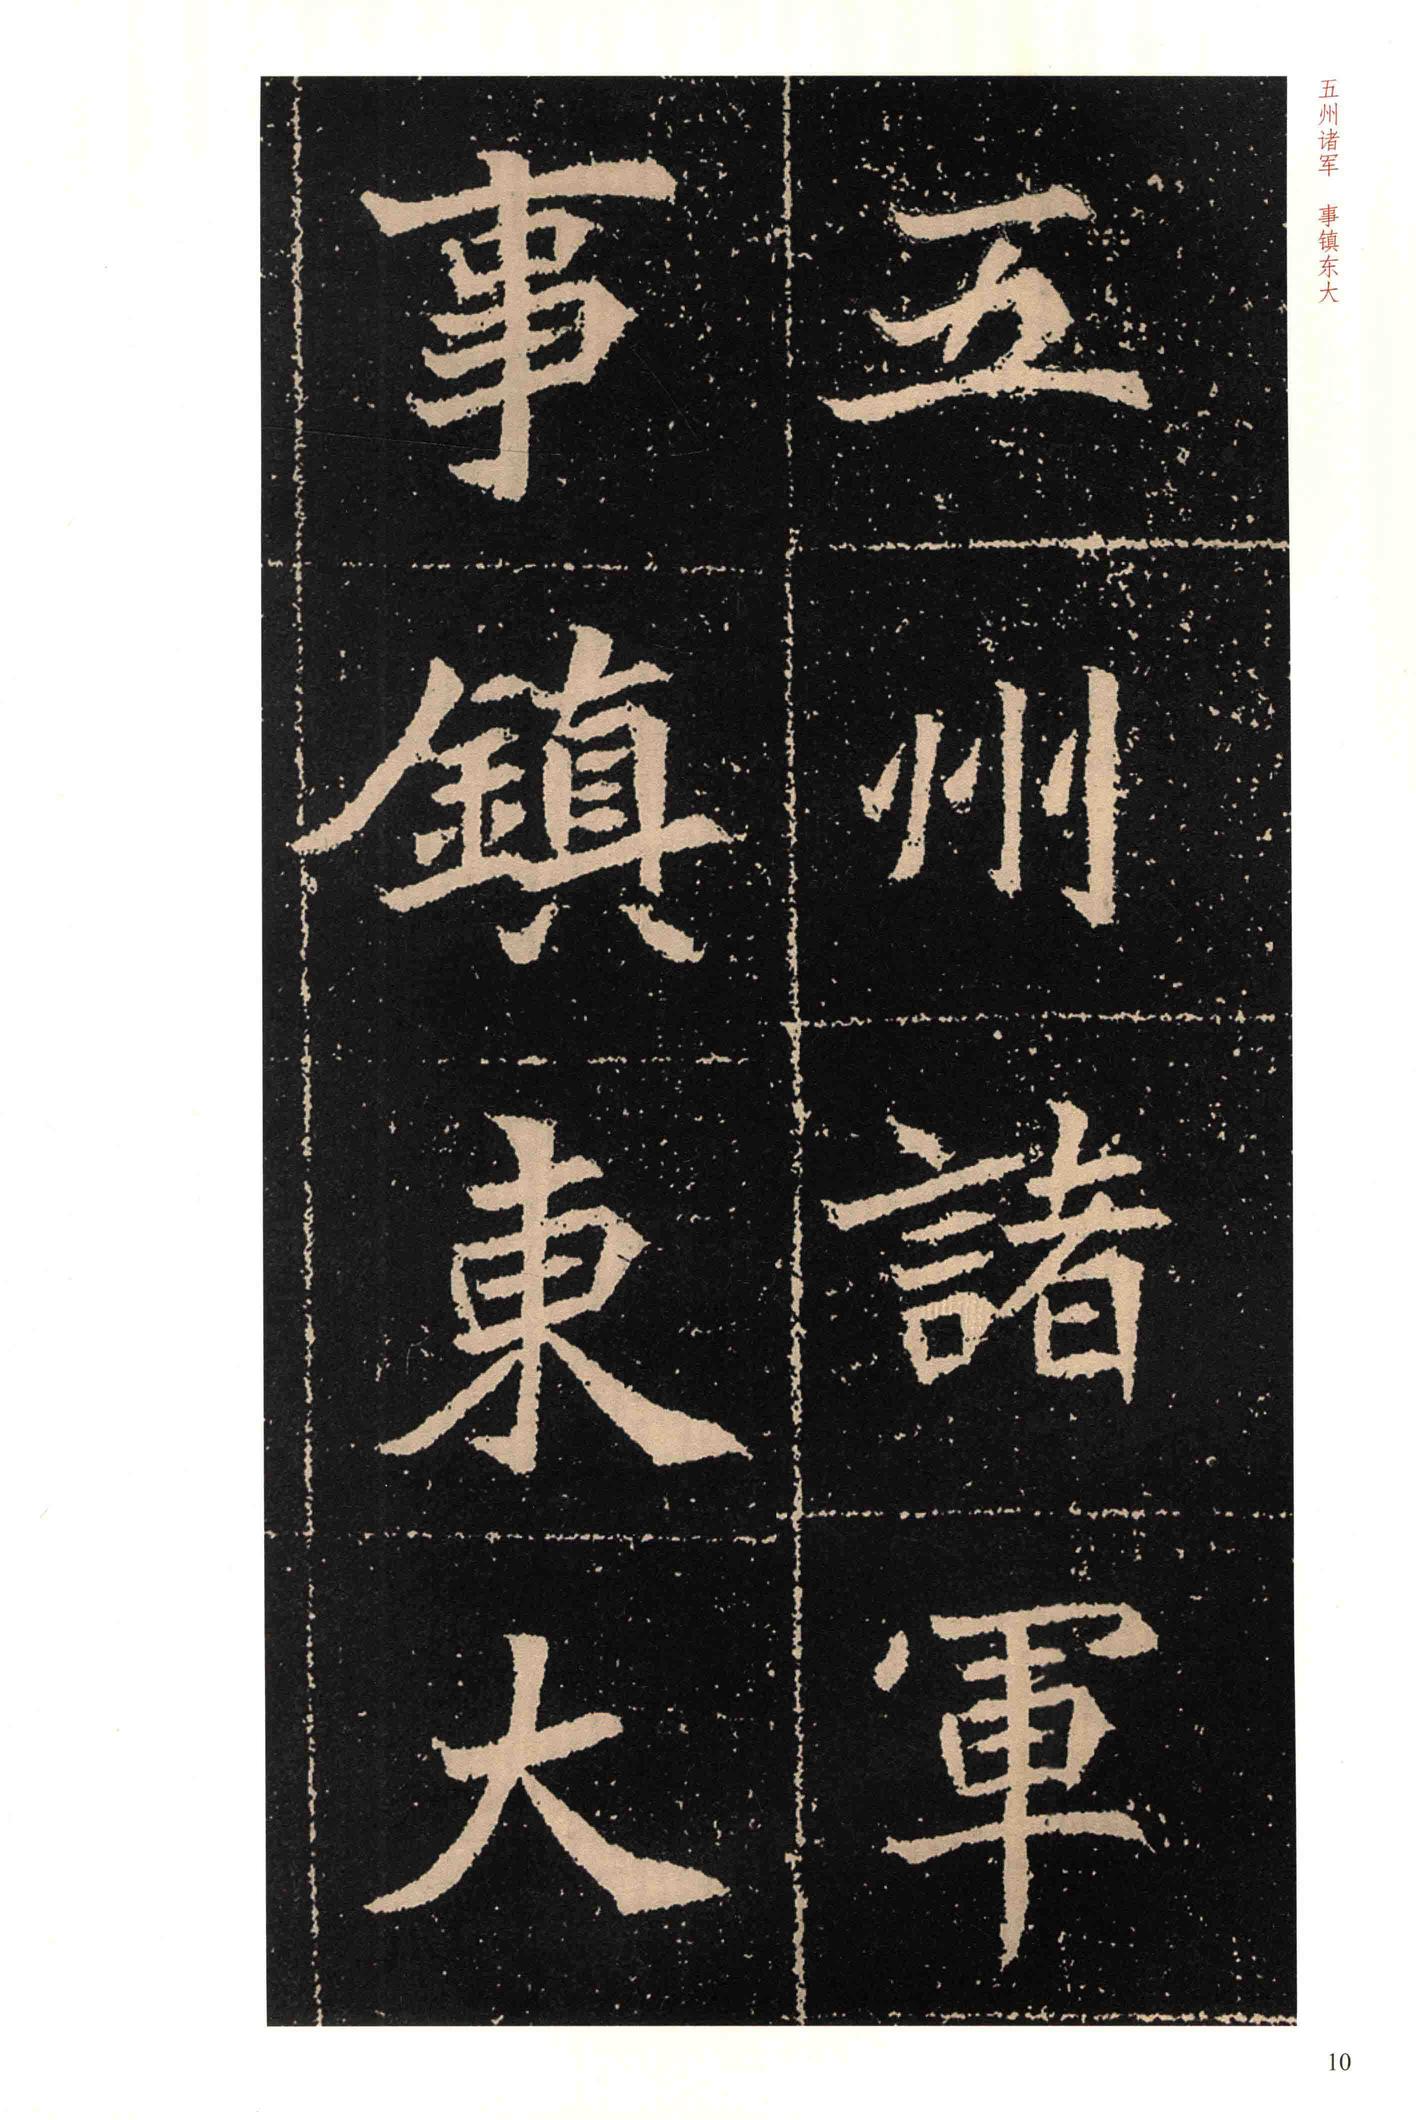 五州诸军 事镇东大
五州諸軍
事鎮東大
10